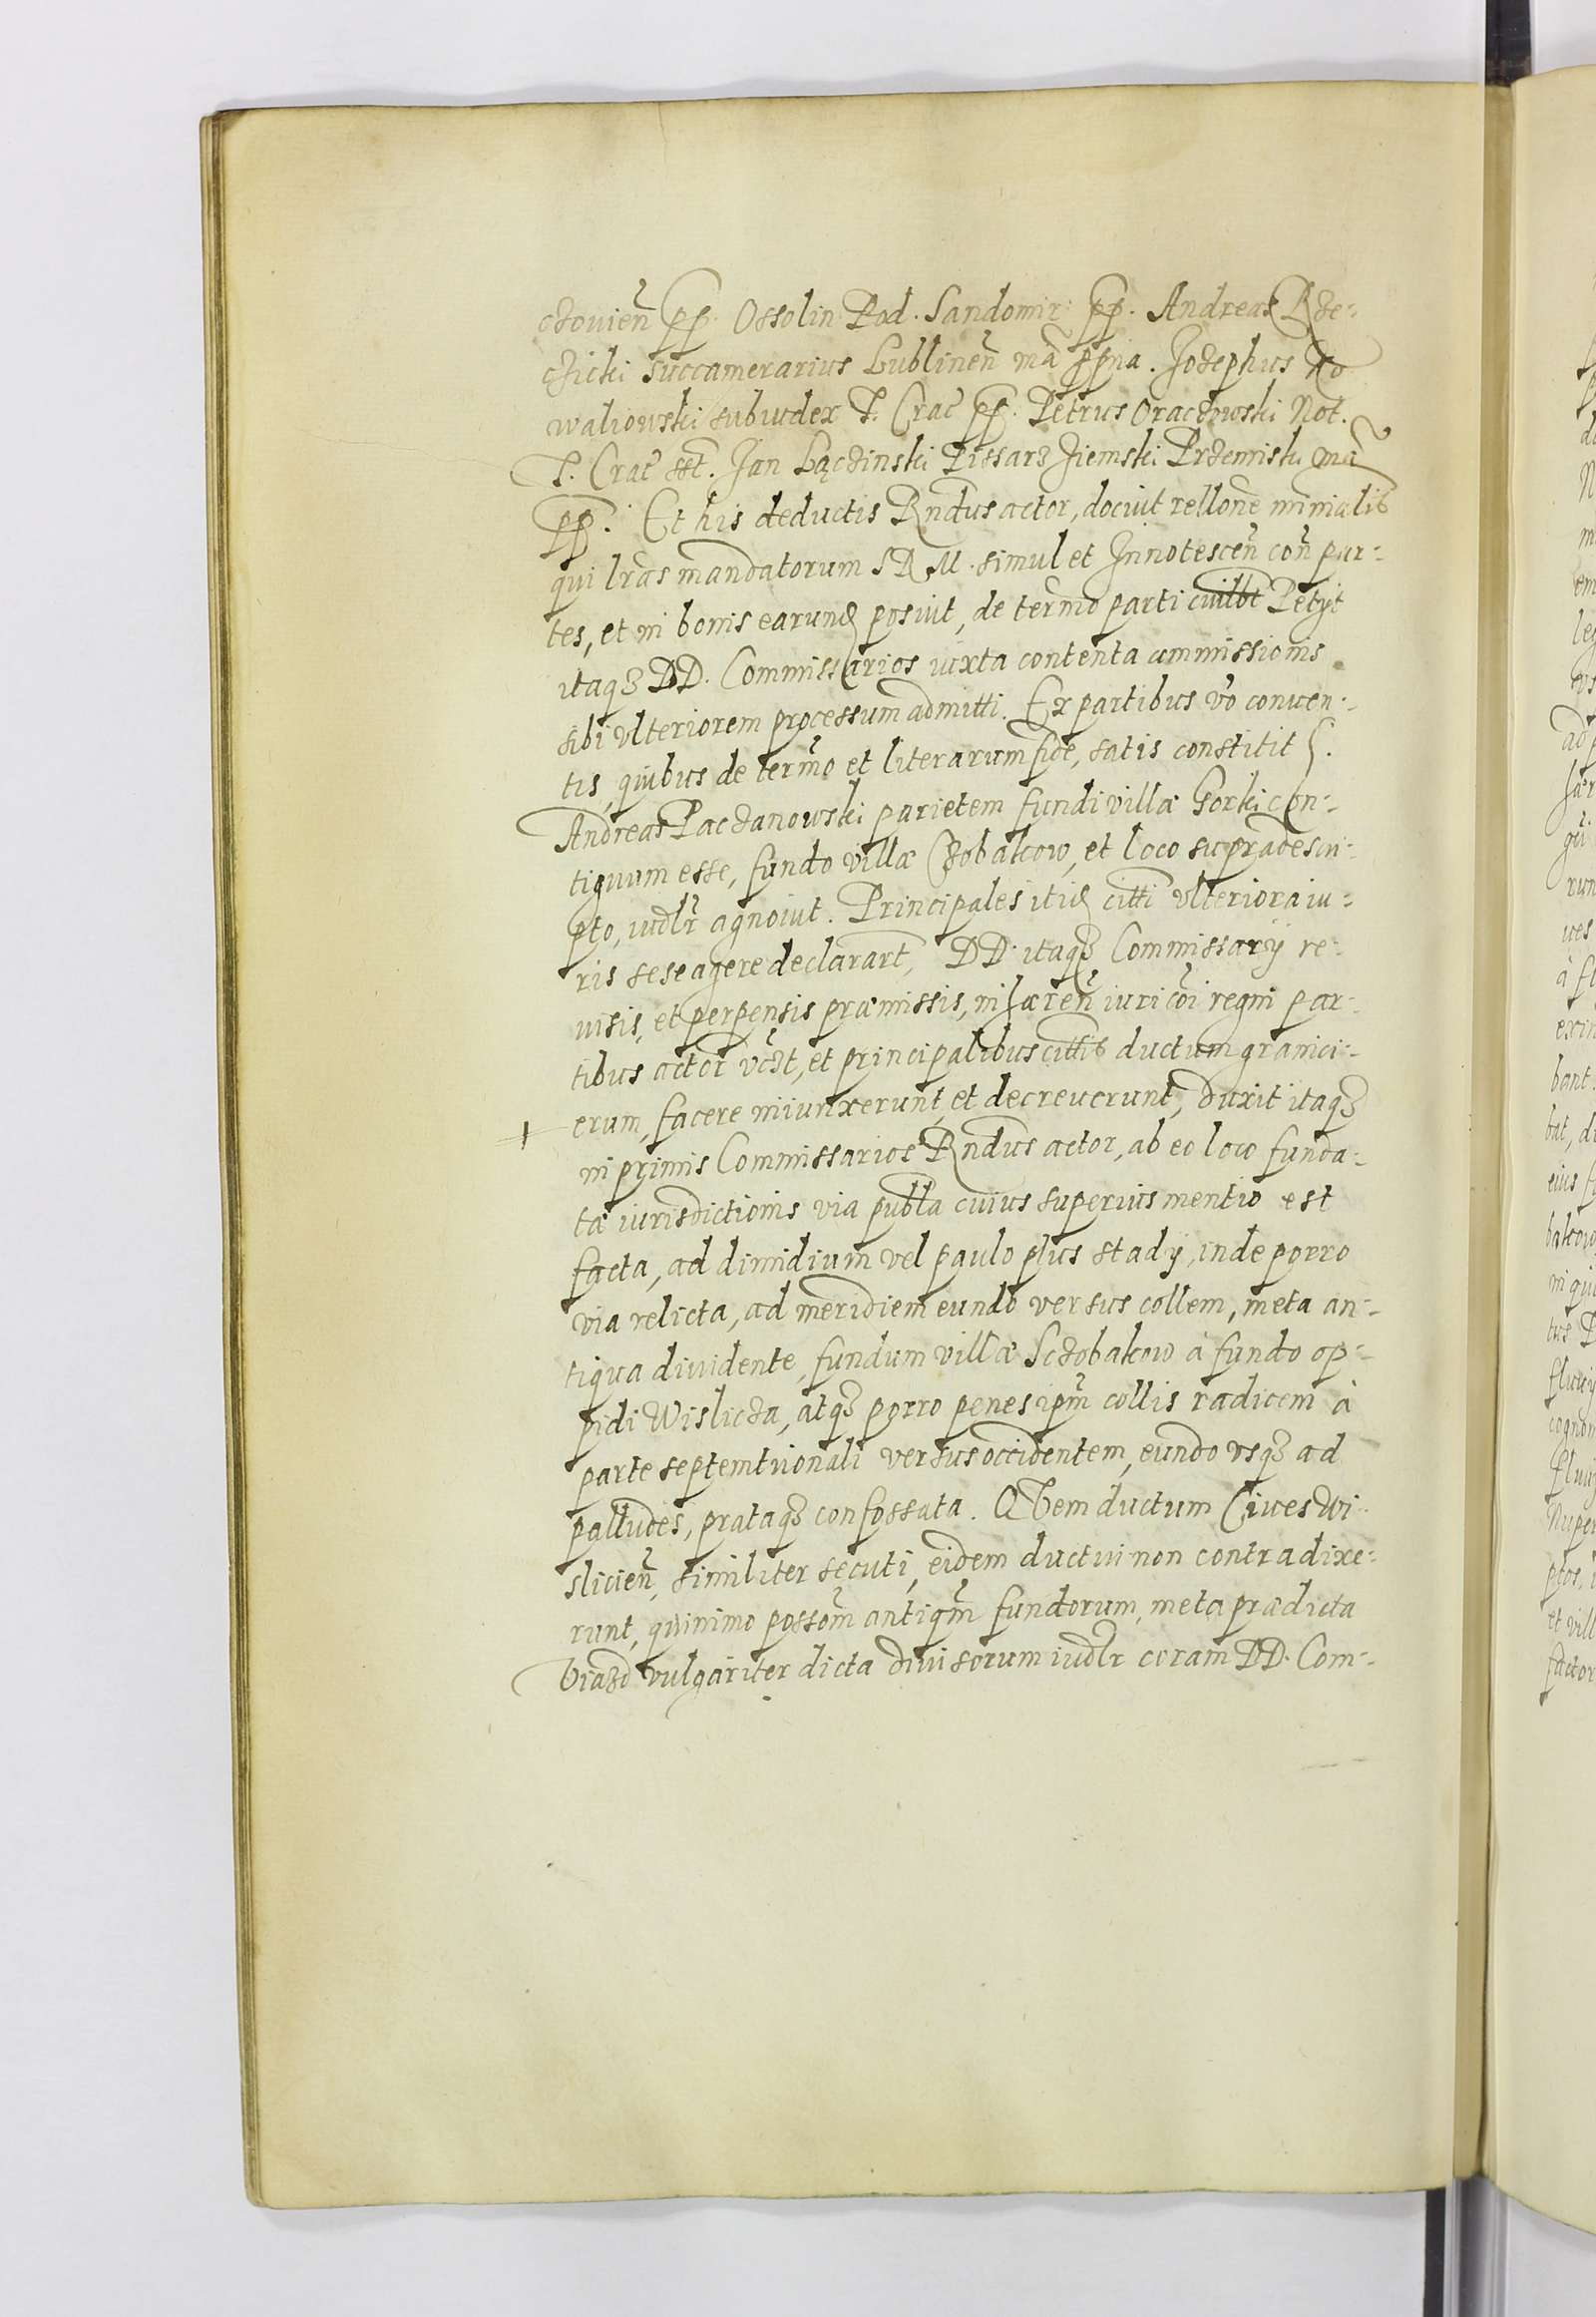 czouien̄ pp. Ossolin: Pod. Sandomir: pp. Andreas Rze-
czicki succamerarius Lublinen̄ mā ppria. Jozephus Ko
waliowski subiudex T. Crac̄ pp. Petrus Oraczowski Not.
T. Crac̄ sst. Jan Łączinski Pissarz Ziemski Przemisk: mā
pp. Et his deductis Rndus actor, docuit rellone ministlis
qui lrās mandatorum SRM. simul et Innotescen̄ con̄ par-
tes, et in bonis earundē posuit, de termo parti Petyt
itaqз DD. Commissarios iuxta contenta commissionis
sibi vlteriorem processum admitti. Ex partibus vo conuen-
tis, quibus de termo et literarum fide, satis constitit G.
Andreas Paczanowski parietem fundi villæ Gorki con-
tiguum esse, fundo villæ Czobakow, et loco supradescri-
pto, iudlr agnouit. Principales itidē citti vlteriora iu-
ris sese agere declarart, DD. itaqз Commissarÿ re-
uisis, et perpensis præmissis, inhæren̄ iuri cōi regni par-
tibus actor vczt, et principalibus cittis ductum granici-
erum, facere iniunxerunt, et decreuerunt, Duxit itaqз
in primis Commissarios Rndus actor, ab eo loco funda-
tæ iurisdictionis via publa cuius superius mentio est
facta, ad dimidium vel paulo plus stadÿ, inde porro
via relicta, ad meridiem eundo versus collem, meta an-
tiqua diuidente, fundum villæ Sczobakow à fundo op-
pidi Wislicza, atqз porro penes ipm̄ collis radicem à
parte septemtrionali versus occidentem, eundo vsqз ad
palludes, prataqз confossata. Qūem ductum Ciues Wi-
slicien̄, similiter secuti, eidem ductui non contradixe-
runt, quinimo possom̄ antiqm̄ fundorum, meta prædicta
Viazd vulgariter dicta diuisorum iudlr coram DD. Com-